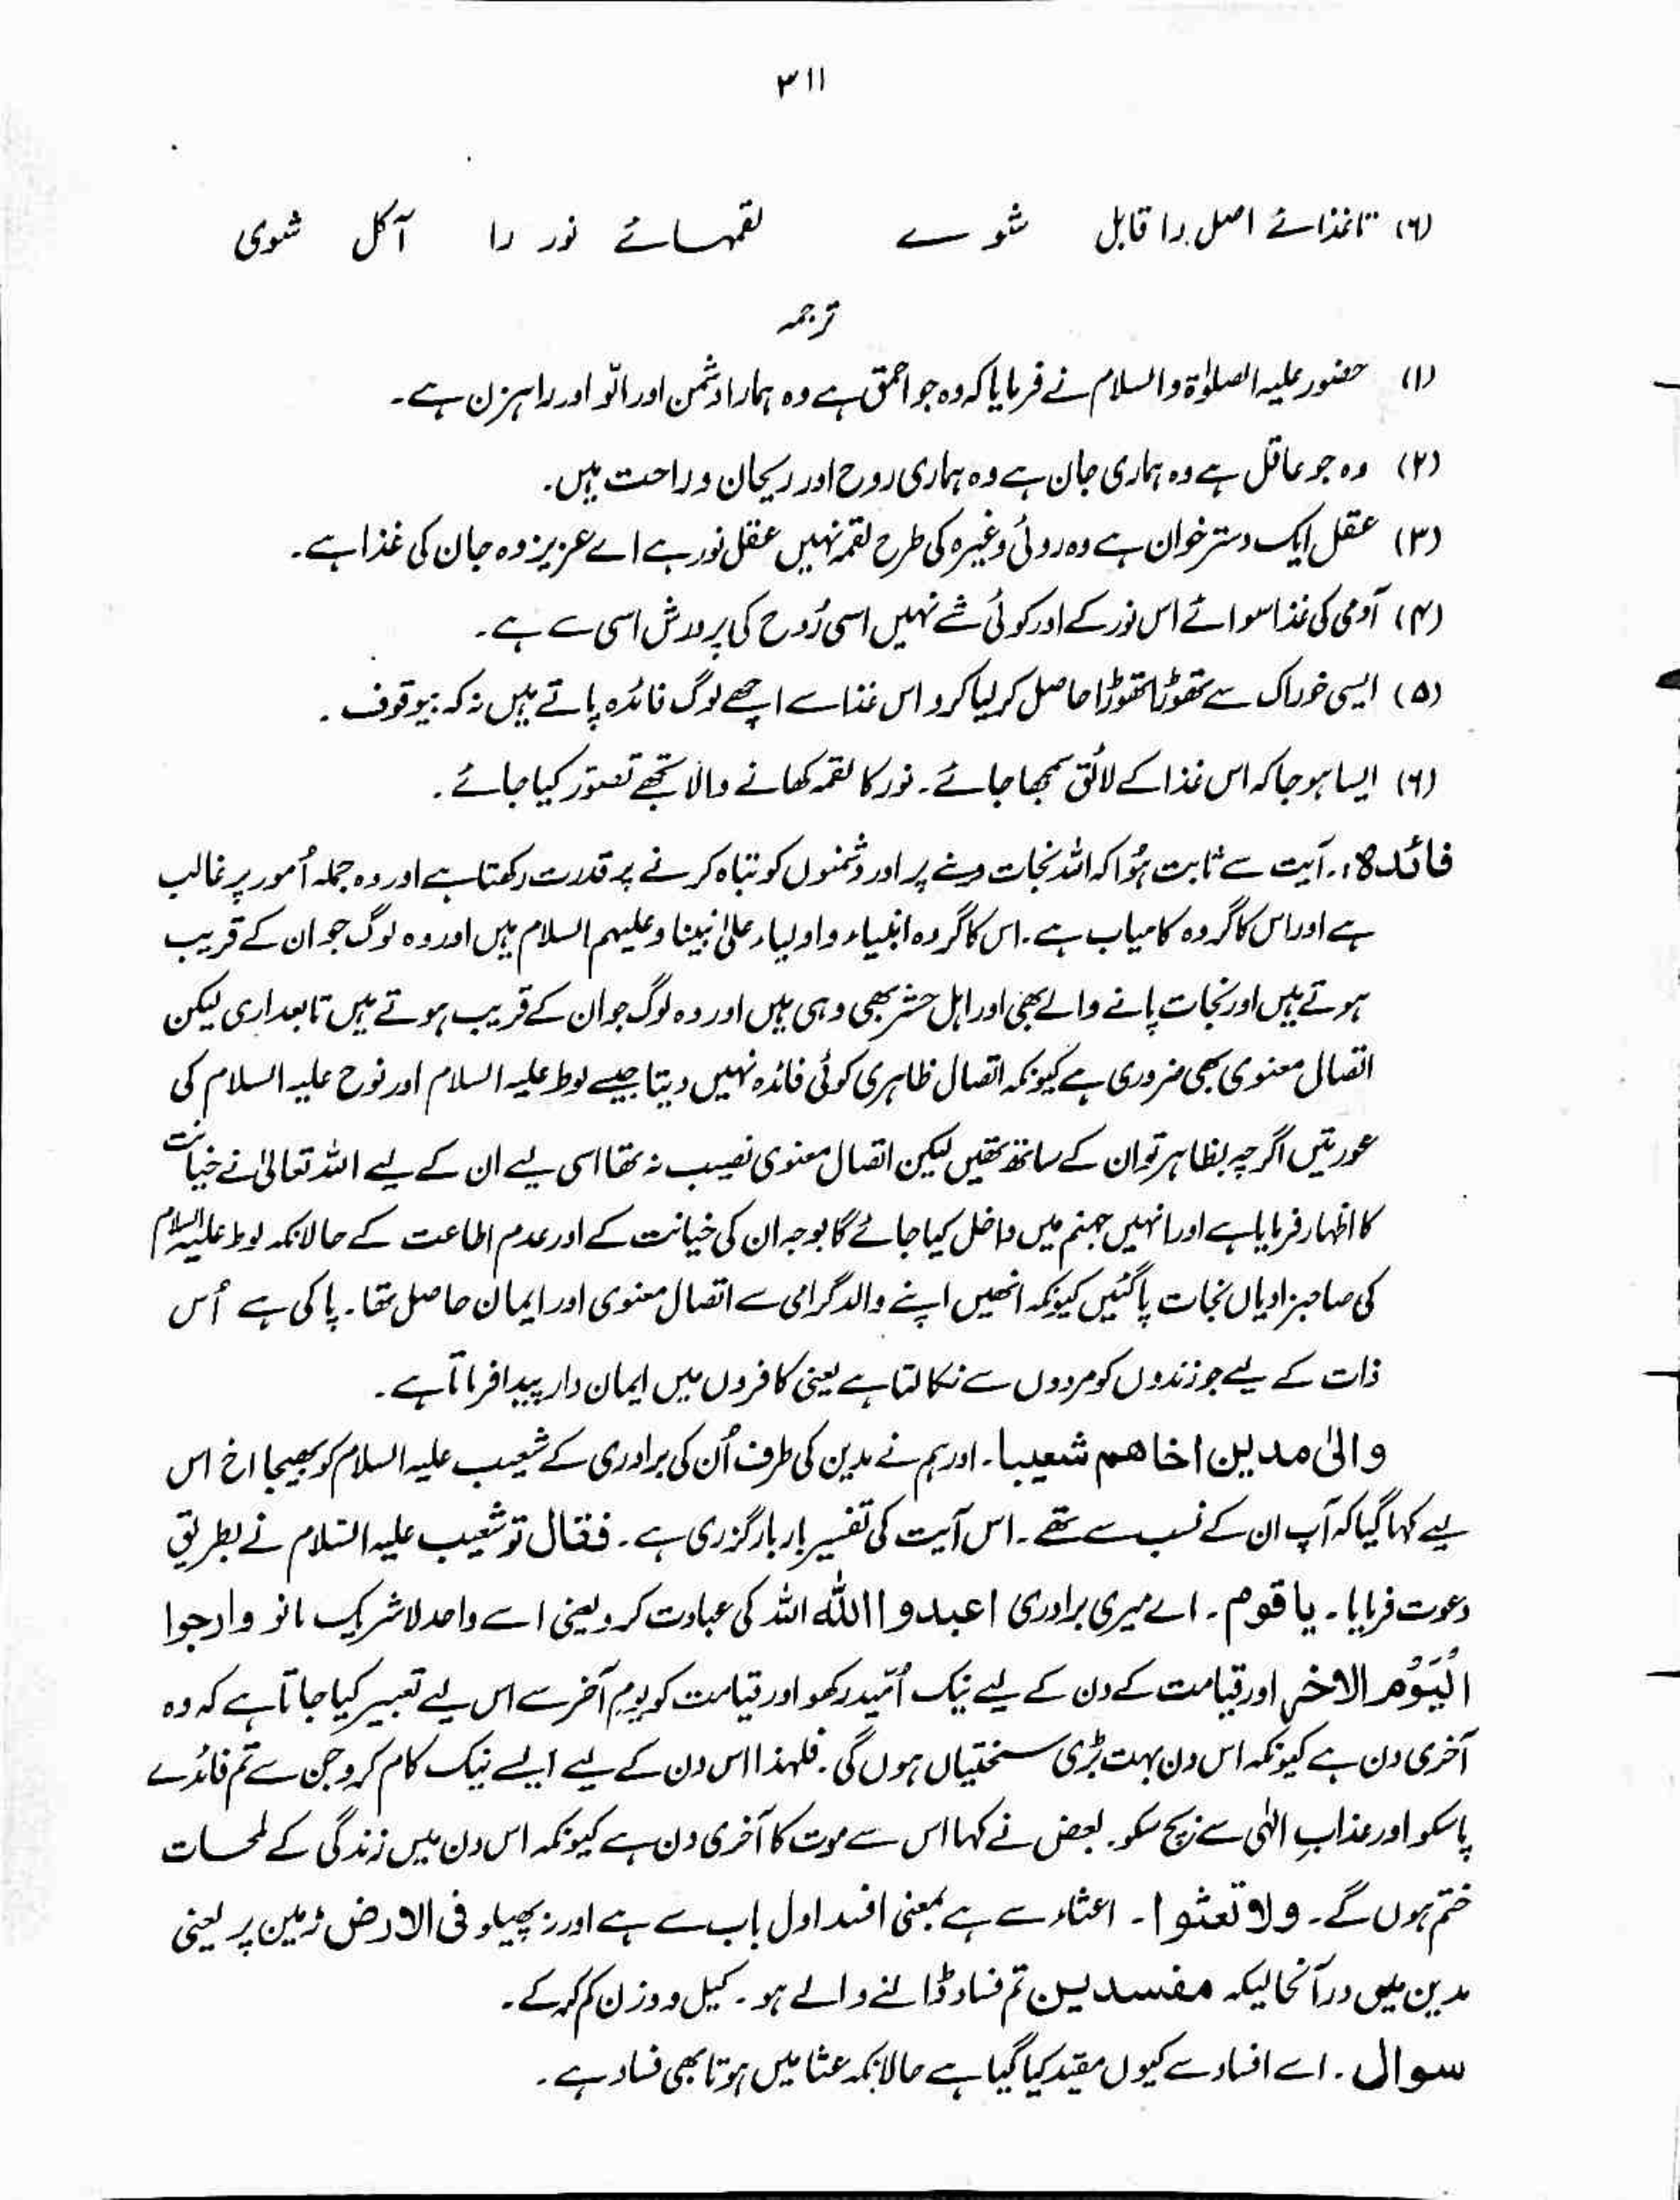 ۳۱۱
(۶) تا غذائے اصل را قابل شوے لقمہائے نور را آکل شوی
ترجمہ
(۱) حضور علیہ الصلوٰۃ والسلام نے فرمایا کہ وہ جو احمق ہے وہ ہمارا دشمن اور الّو اور راہزن ہے۔
(۲) وہ جو عاقل ہے وہ ہماری جان ہے وہ ہماری روح اور ریحان و راحت ہیں۔
(۳) عقل ایک دسترخوان ہے وہ روئی وغیرہ کی طرح لقمہ نہیں عقل نور ہے اے عزیز وہ جان کی غذا ہے۔
(۴) آدمی کی غذا سوائے اس نور کے اور کوئی شے نہیں اسی رُوح کی پرورش اسی سے ہے۔
(۵) ایسی خوراک سے تھوڑا تھوڑا حاصل کر لیا کرو اس غذا سے اچھے لوگ فائدہ پاتے ہیں نہ کہ بیوقوف۔
(۶) ایسا ہو جا کہ اس غذا کے لائق سمجھا جائے۔ نور کا لقمہ کھانے والا تجھے تصوّر کیا جائے۔
فائدہ:۔ آیت سے ثابت ہُوا کہ اللہ نجات دینے پر اور دشمنوں کو تباہ کرنے پر قدرت رکھتا ہے اور وہ جملہ اُمور پر غالب
ہے اور اس کا گروہ کامیاب ہے۔ اس کا گروہ انبیاء و اولیاء علیٰ نبینا وعلیہم السلام ہیں اور وہ لوگ جو ان کے قریب
ہوتے ہیں اور نجات پانے والے بھی اور اہل حشر بھی وہی ہیں اور وہ لوگ جو ان کے قریب ہوتے ہیں تابعداری لیکن
اتصال معنوی بھی ضروری ہے کیونکہ اتصال ظاہری کوئی فائدہ نہیں دیتا جیسے لوط علیہ السلام اور نوح علیہ السلام کی
عورتیں اگرچہ بظاہر تو ان کے ساتھ تھیں لیکن اتصال معنوی نصیب نہ تھا اسی لیے ان کے لیے اللہ تعالیٰ نے خیانت
کا اظہار فرمایا ہے اور انہیں جہنم میں داخل کیا جائے گا بوجہ ان کی خیانت کے اور عدم اطاعت کے حالانکہ لوط علیہ السلام
کی صاحبزادیاں نجات پا گئیں کیونکہ انھیں اپنے والد گرامی سے اتصال معنوی اور ایمان حاصل تھا۔ پاکی ہے اُس
ذات کے لیے جو زندوں کو مردوں سے نکالتا ہے یعنی کافروں میں ایمان دار پیدا فرماتا ہے۔
والیٰ مدین اخاھم شعیبا۔ اور ہم نے مدین کی طرف اُن کی برادری کے شعیب علیہ السلام کو بھیجا اخ اس
لیے کہا گیا کہ آپ ان کے نسب سے تھے۔ اس آیت کی تفسیر بار بار گزری ہے۔ فقال تو شعیب علیہ السّلام نے بطریق
دعوت فرمایا۔ یا قوم۔ اے میری برادری اعبدوا اللّٰہ اللہ کی عبادت کرو یعنی اسے واحد لا شریک مانو وارجوا
الْیَوْمَ الاخر اور قیامت کے دن کے لیے نیک اُمّید رکھو اور قیامت کو یومِ آخر سے اس لیے تعبیر کیا جاتا ہے کہ وہ
آخری دن ہے کیونکہ اس دن بہت بڑی سختیاں ہوں گی۔ فلہذا اس دن کے لیے ایسے نیک کام کرو جن سے تم فائدے
پا سکو اور عذابِ الٰہی سے بچ سکو۔ بعض نے کہا اس سے موت کا آخری دن ہے کیونکہ اس دن میں زندگی کے لمحات
ختم ہوں گے۔ ولا تعثوا۔ اعثاء سے ہے بمعنی افسد اول باب سے ہے اور نہ پھیلو فی الارض زمین پر یعنی
مدین میں درآنحالیکہ مفسدین تم فساد ڈالنے والے ہو۔ کیل و وزن کم کر کے۔
سوال۔ اسے افساد سے کیوں مقید کیا گیا ہے حالانکہ عثا میں ہوتا بھی فساد ہے۔